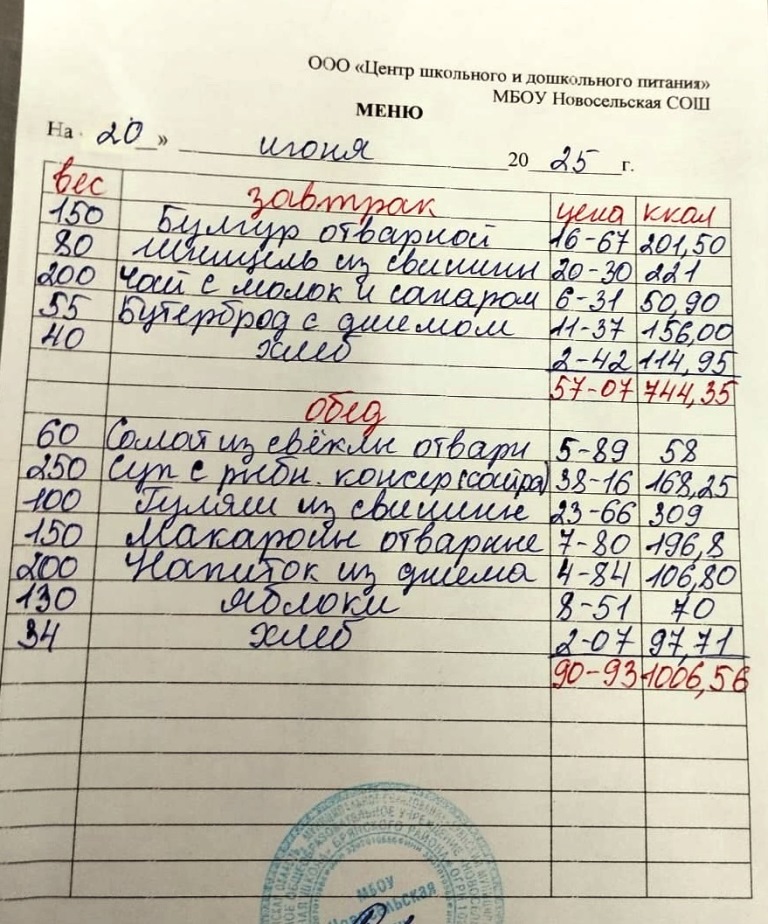 ООО «Центр школьного и дошкольного питания»
МБОУ Новосельская СОШ
МЕНЮ
На 20 » июня 20 25 г.
вес завтрак цена ккал
150 Булгур отварной 16-67 201,50
80 Шницель из свинины 20-30 221
200 Чай с молок и сахаром 6-31 50,90
55 Бутерброд с джемом 11-37 156,00
40 хлеб 2-42 114,95
57-07 744,35
обед
60 Салат из свёклы отварн 5-89 58
250 Суп с рыбн. консер (сайра) 38-16 168,25
100 Гуляш из свинины 23-66 309
150 Макароны отварные 7-80 196,8
200 Напиток из джема 4-84 106,80
130 яблоки 8-51 70
34 хлеб 2-07 97,71
90-93 1006,56
МБОУ
Новосельская